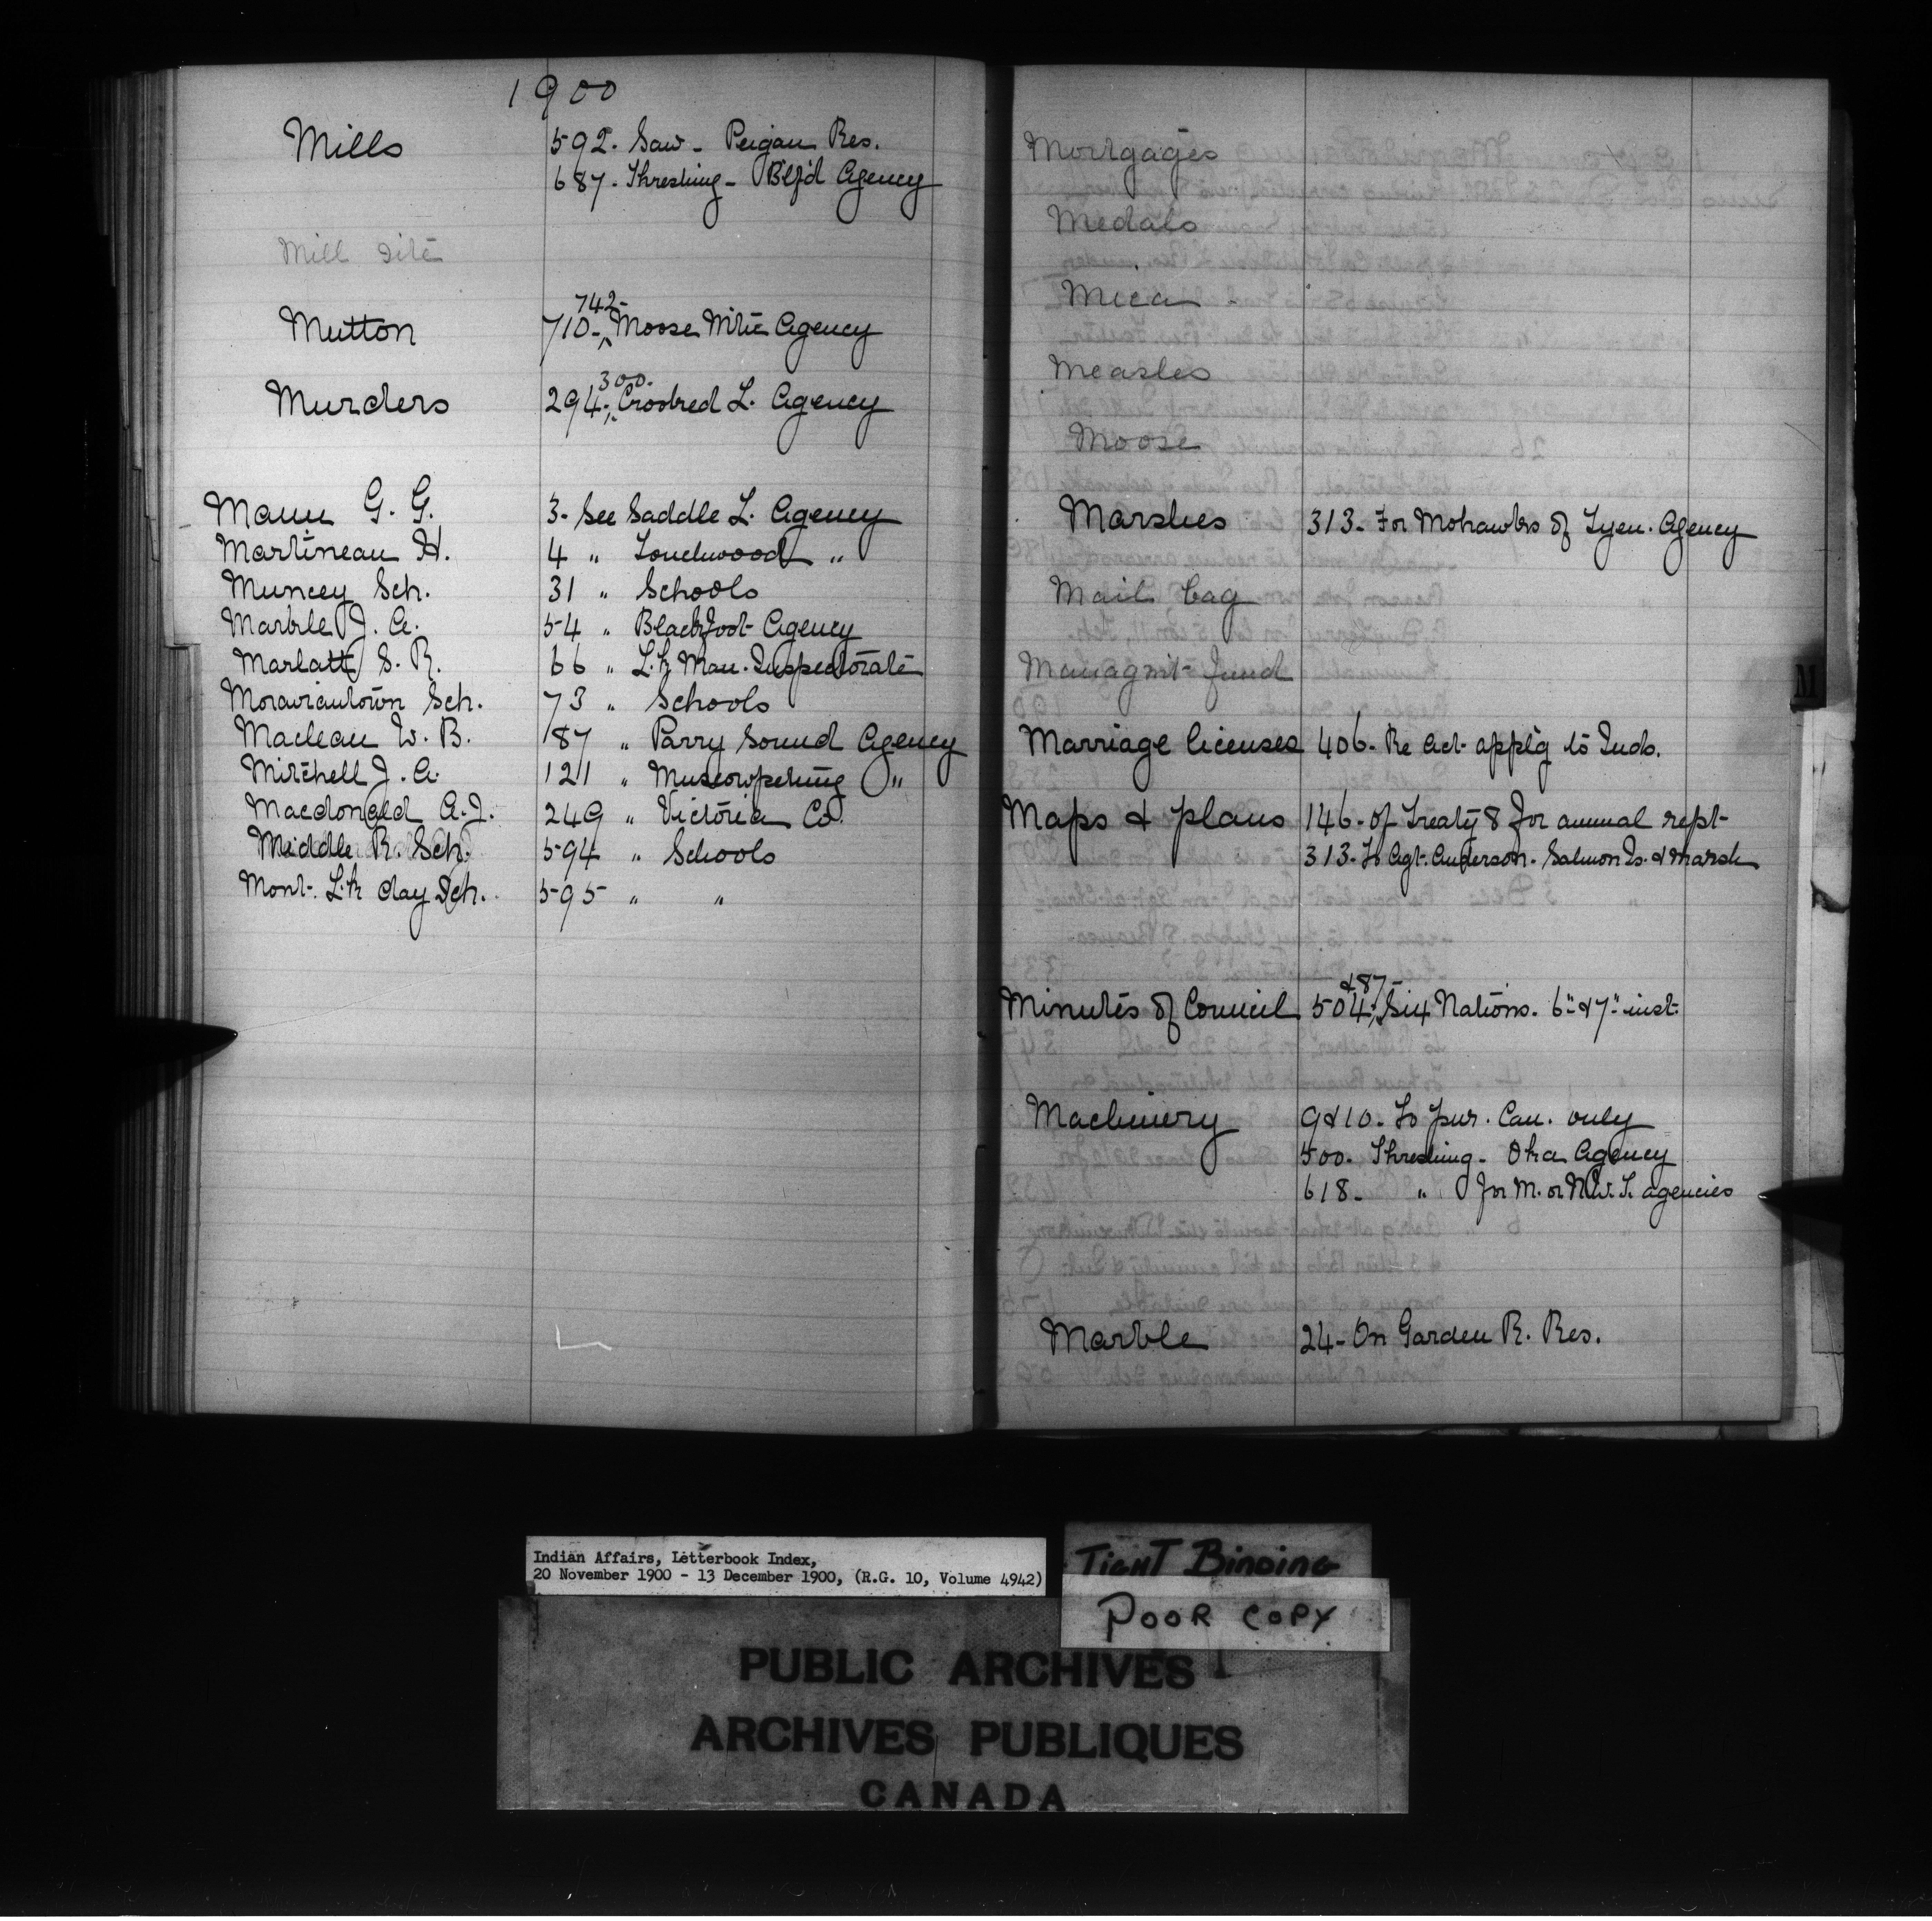 1900
Mills 592. Saw - Peigan Res.
687. Threshing - Blf'd Agency
Mill site
742-
Mutton 710-, Moose Mtn Agency
300.
Murders 294-, Crooked L. Agency
Mann G. G. 3. See Saddle L. Agency
Martineau H. 4 " Touchwood "
Muncey Sch. 31 " Schools
Marble J. A. 54 " Blackfoot Agency
Marlatt S. R. 66 " L. & Man. Inspectorate
Moraviantown Sch. 73 " Schools
Maclean W. B. 187 " Parry Sound Agency
Mitchell J. A. 121 " Muscowpetung "
Macdonald A. J. 249 " Victoria Co.
Middle R. Sch. 594 " Schools
Mont. Lk day Sch. 595 " "
Mortgages
Medals
Mica
Measles
Moose
Marshes 313. For Mohawks of Tyen. Agency
Mail bag
Managm't fund
Marriage licenses 406. Re Act applg to Inds.
Maps & plans 146. of Treaty 8 for annual rept
313. To Agt. Anderson. Salmon Is. & Marsh
& 87-
Minutes of Council 504, Six Nations. 6" & 7" inst.
Machinery 9 & 10. To pur. Can. only
500. Threshing - Oka Agency
618- " for M. or N.W.T. agencies
Marble 24- On Garden R. Res.
M
Indian Affairs, Letterbook Index,
20 November 1900 - 13 December 1900, (R.G. 10, Volume 4942)
TIGHT BINDING
POOR COPY
PUBLIC ARCHIVES
ARCHIVES PUBLIQUES
CANADA